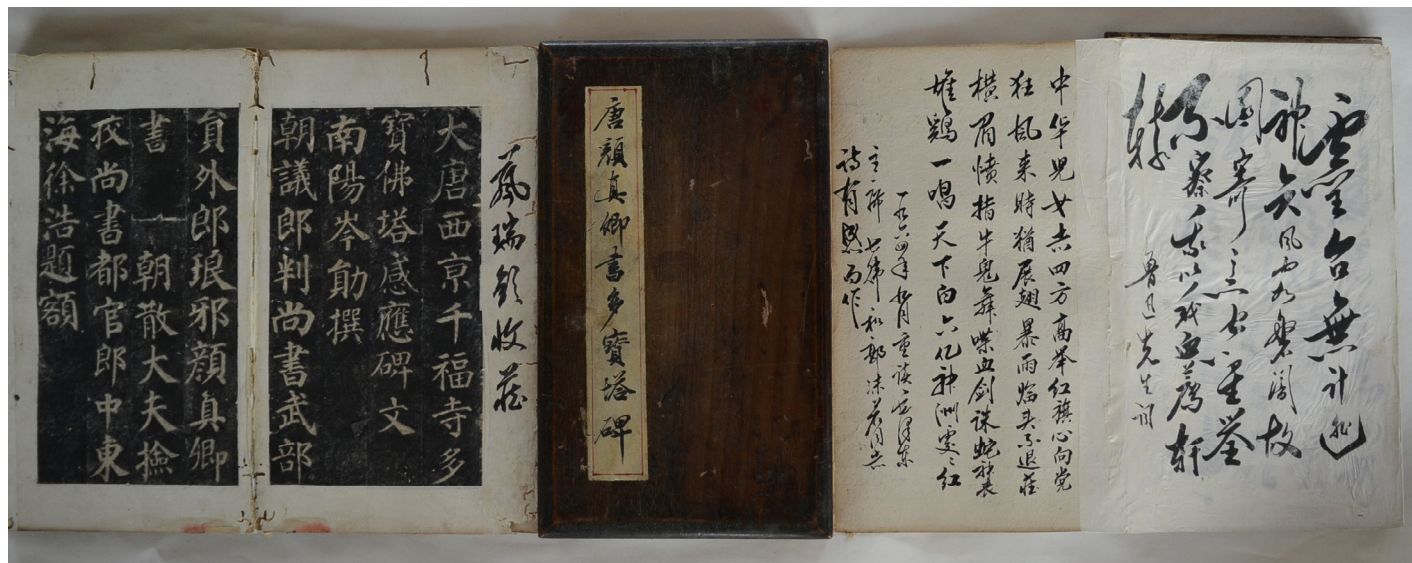 靈台無計逃
神矢風雨如磐闇故
園寄意寒星荃
不察我以我血薦軒
轅
魯迅先生
中华児女志四方高举红旗心向党
狂風来時猶展翅暴雨临头不退
横眉愤指牛鬼舞喋血剑誅蛇神
雄鷄一唱天下白六亿神洲雯々红
一九六四年 月重读毛泽东
主席七律和郭沫若同志
诗有感而作
唐顏真卿書多寶塔碑
瑞 收莊
大唐西京千福寺多
寶佛塔感應碑文
南陽岑勛撰
朝議郎判尚書武部
員外郎琅邪顏真卿
書 朝散大夫撿
挍尚書都官郎中東
海徐浩題額